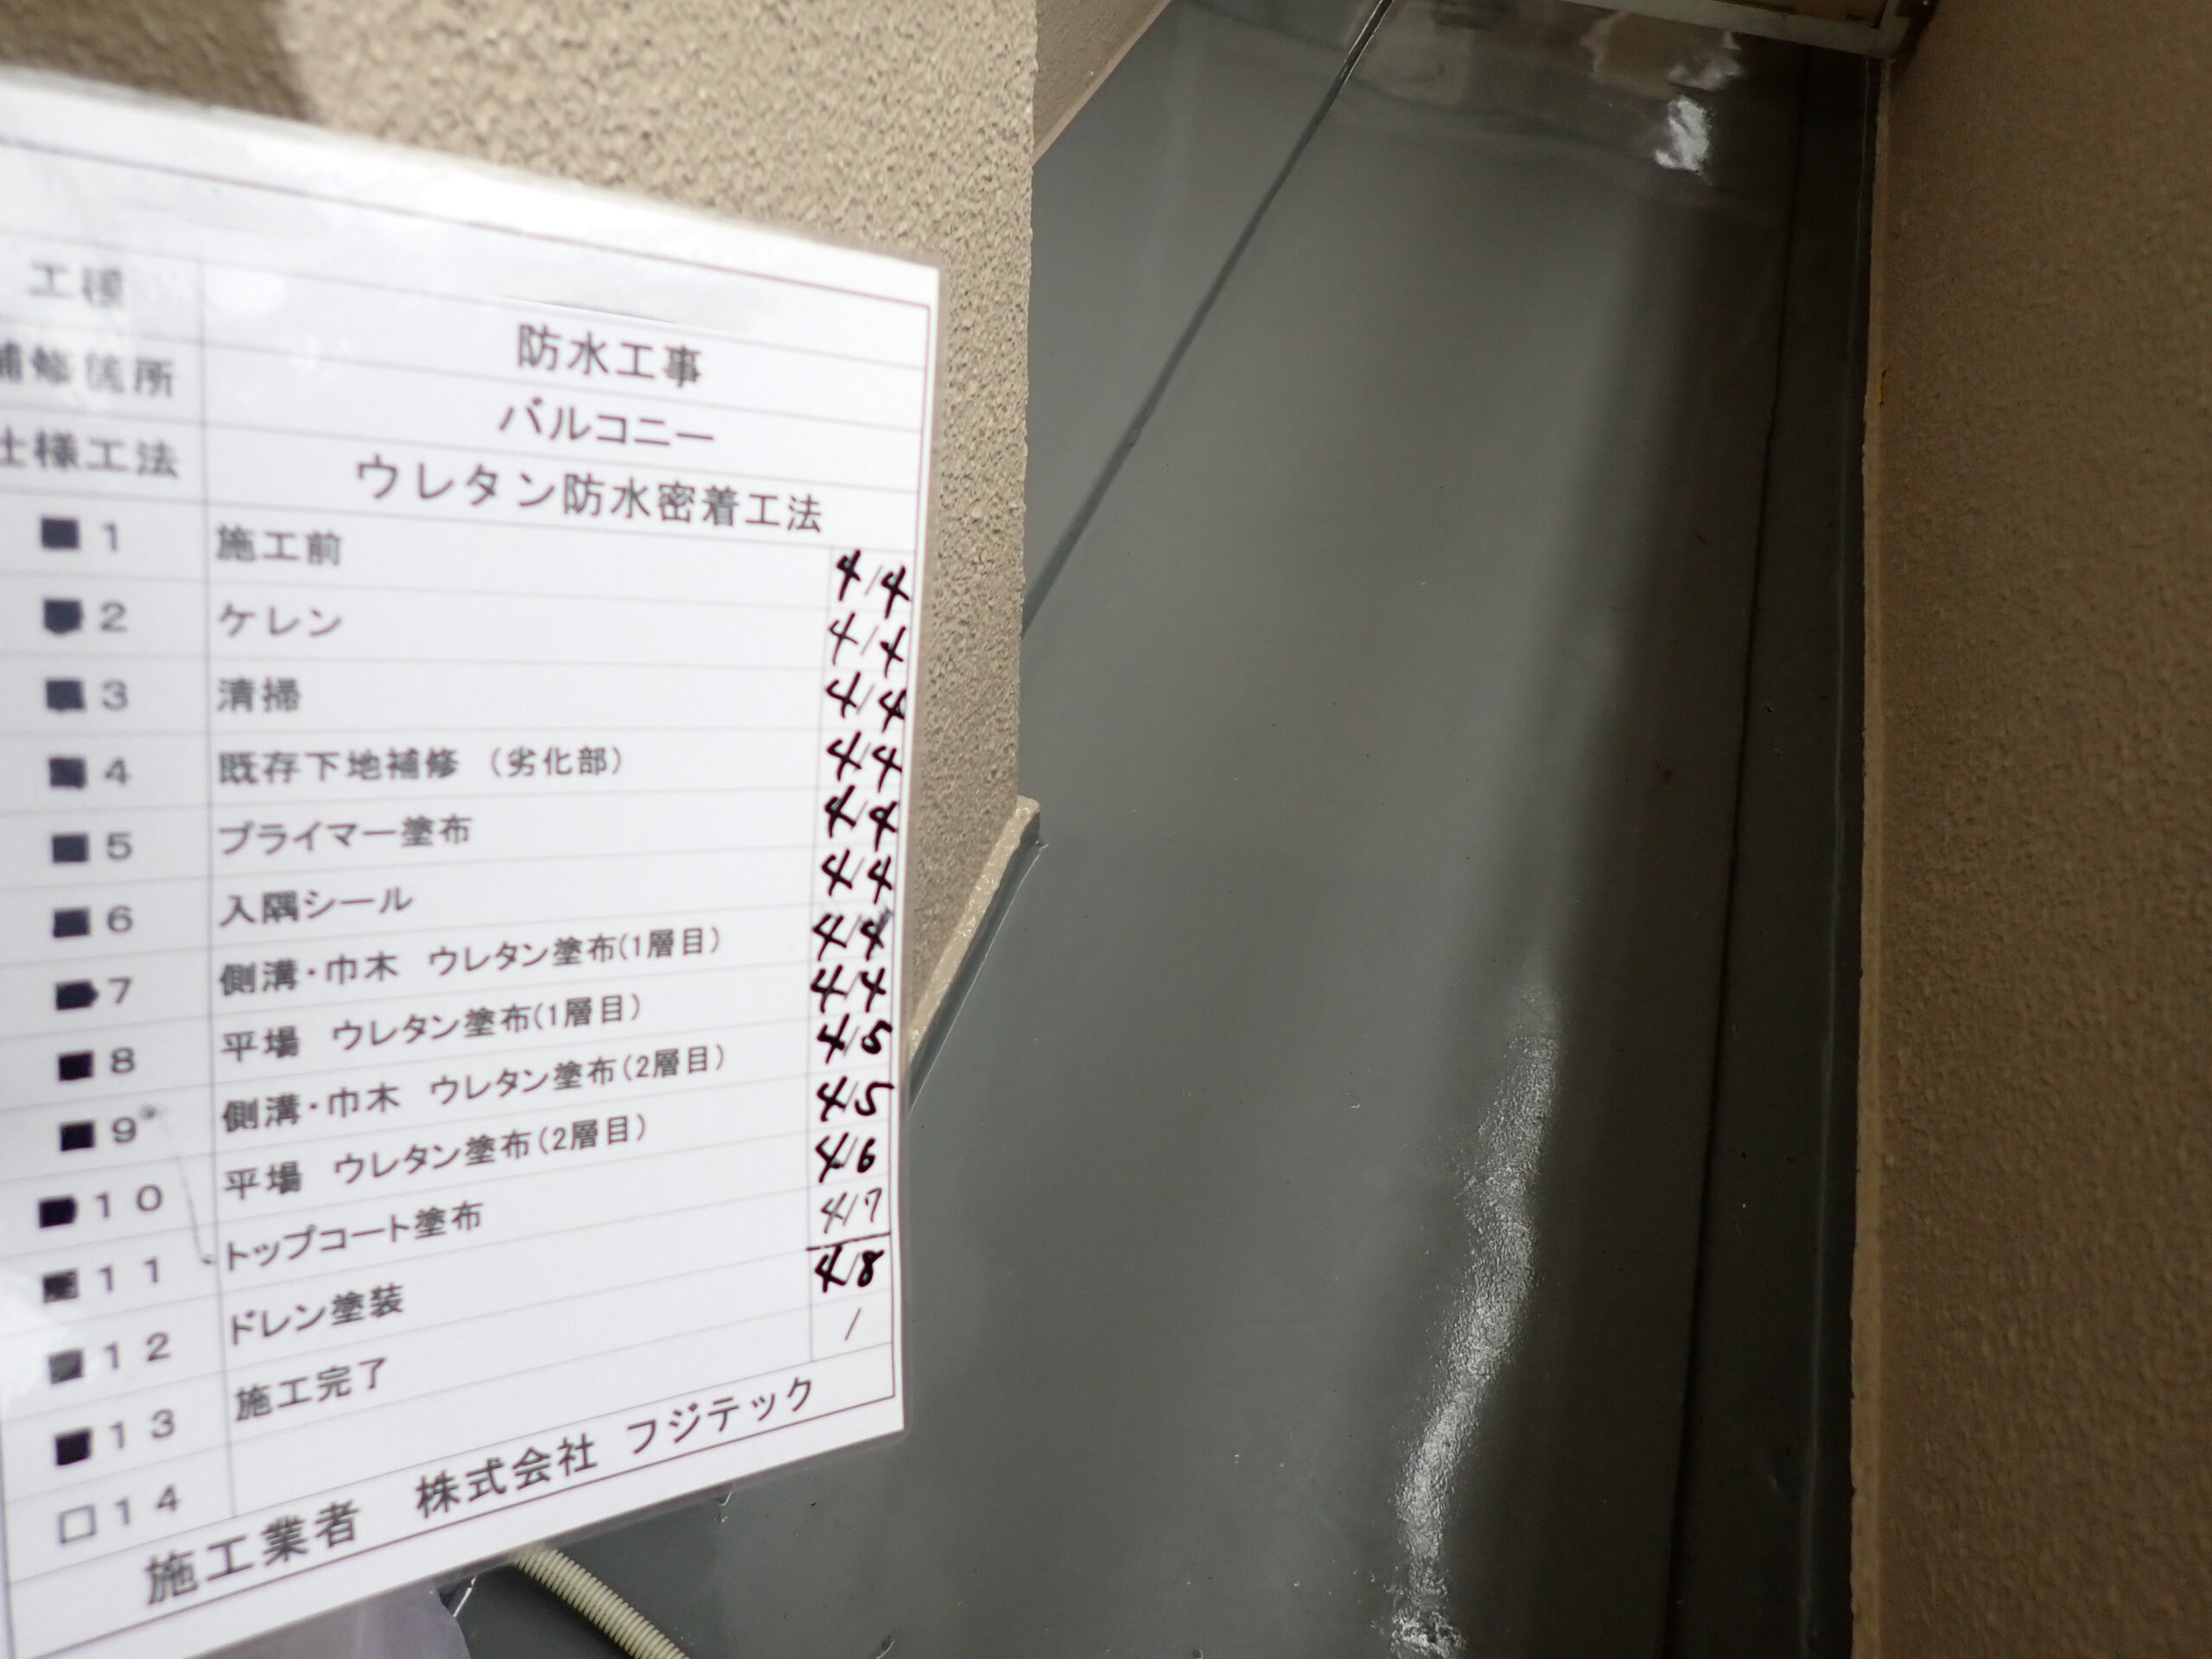 工種
防水工事
補修箇所
バルコニー
仕様工法
ウレタン防水密着工法
■1 施工前 4/4
■2 ケレン 4/4
■3 清掃 4/4
■4 既存下地補修 （劣化部） 4/4
■5 プライマー塗布 4/4
■6 入隅シール 4/4
■7 側溝・巾木 ウレタン塗布(1層目) 4/4
■8 平場 ウレタン塗布(1層目) 4/4
■9 側溝・巾木 ウレタン塗布(2層目) 4/5
■10 平場 ウレタン塗布(2層目) 4/5
■11 トップコート塗布 4/6
■12 ドレン塗装 4/7
■13 施工完了 4/8
□14 /
施工業者 株式会社 フジテック